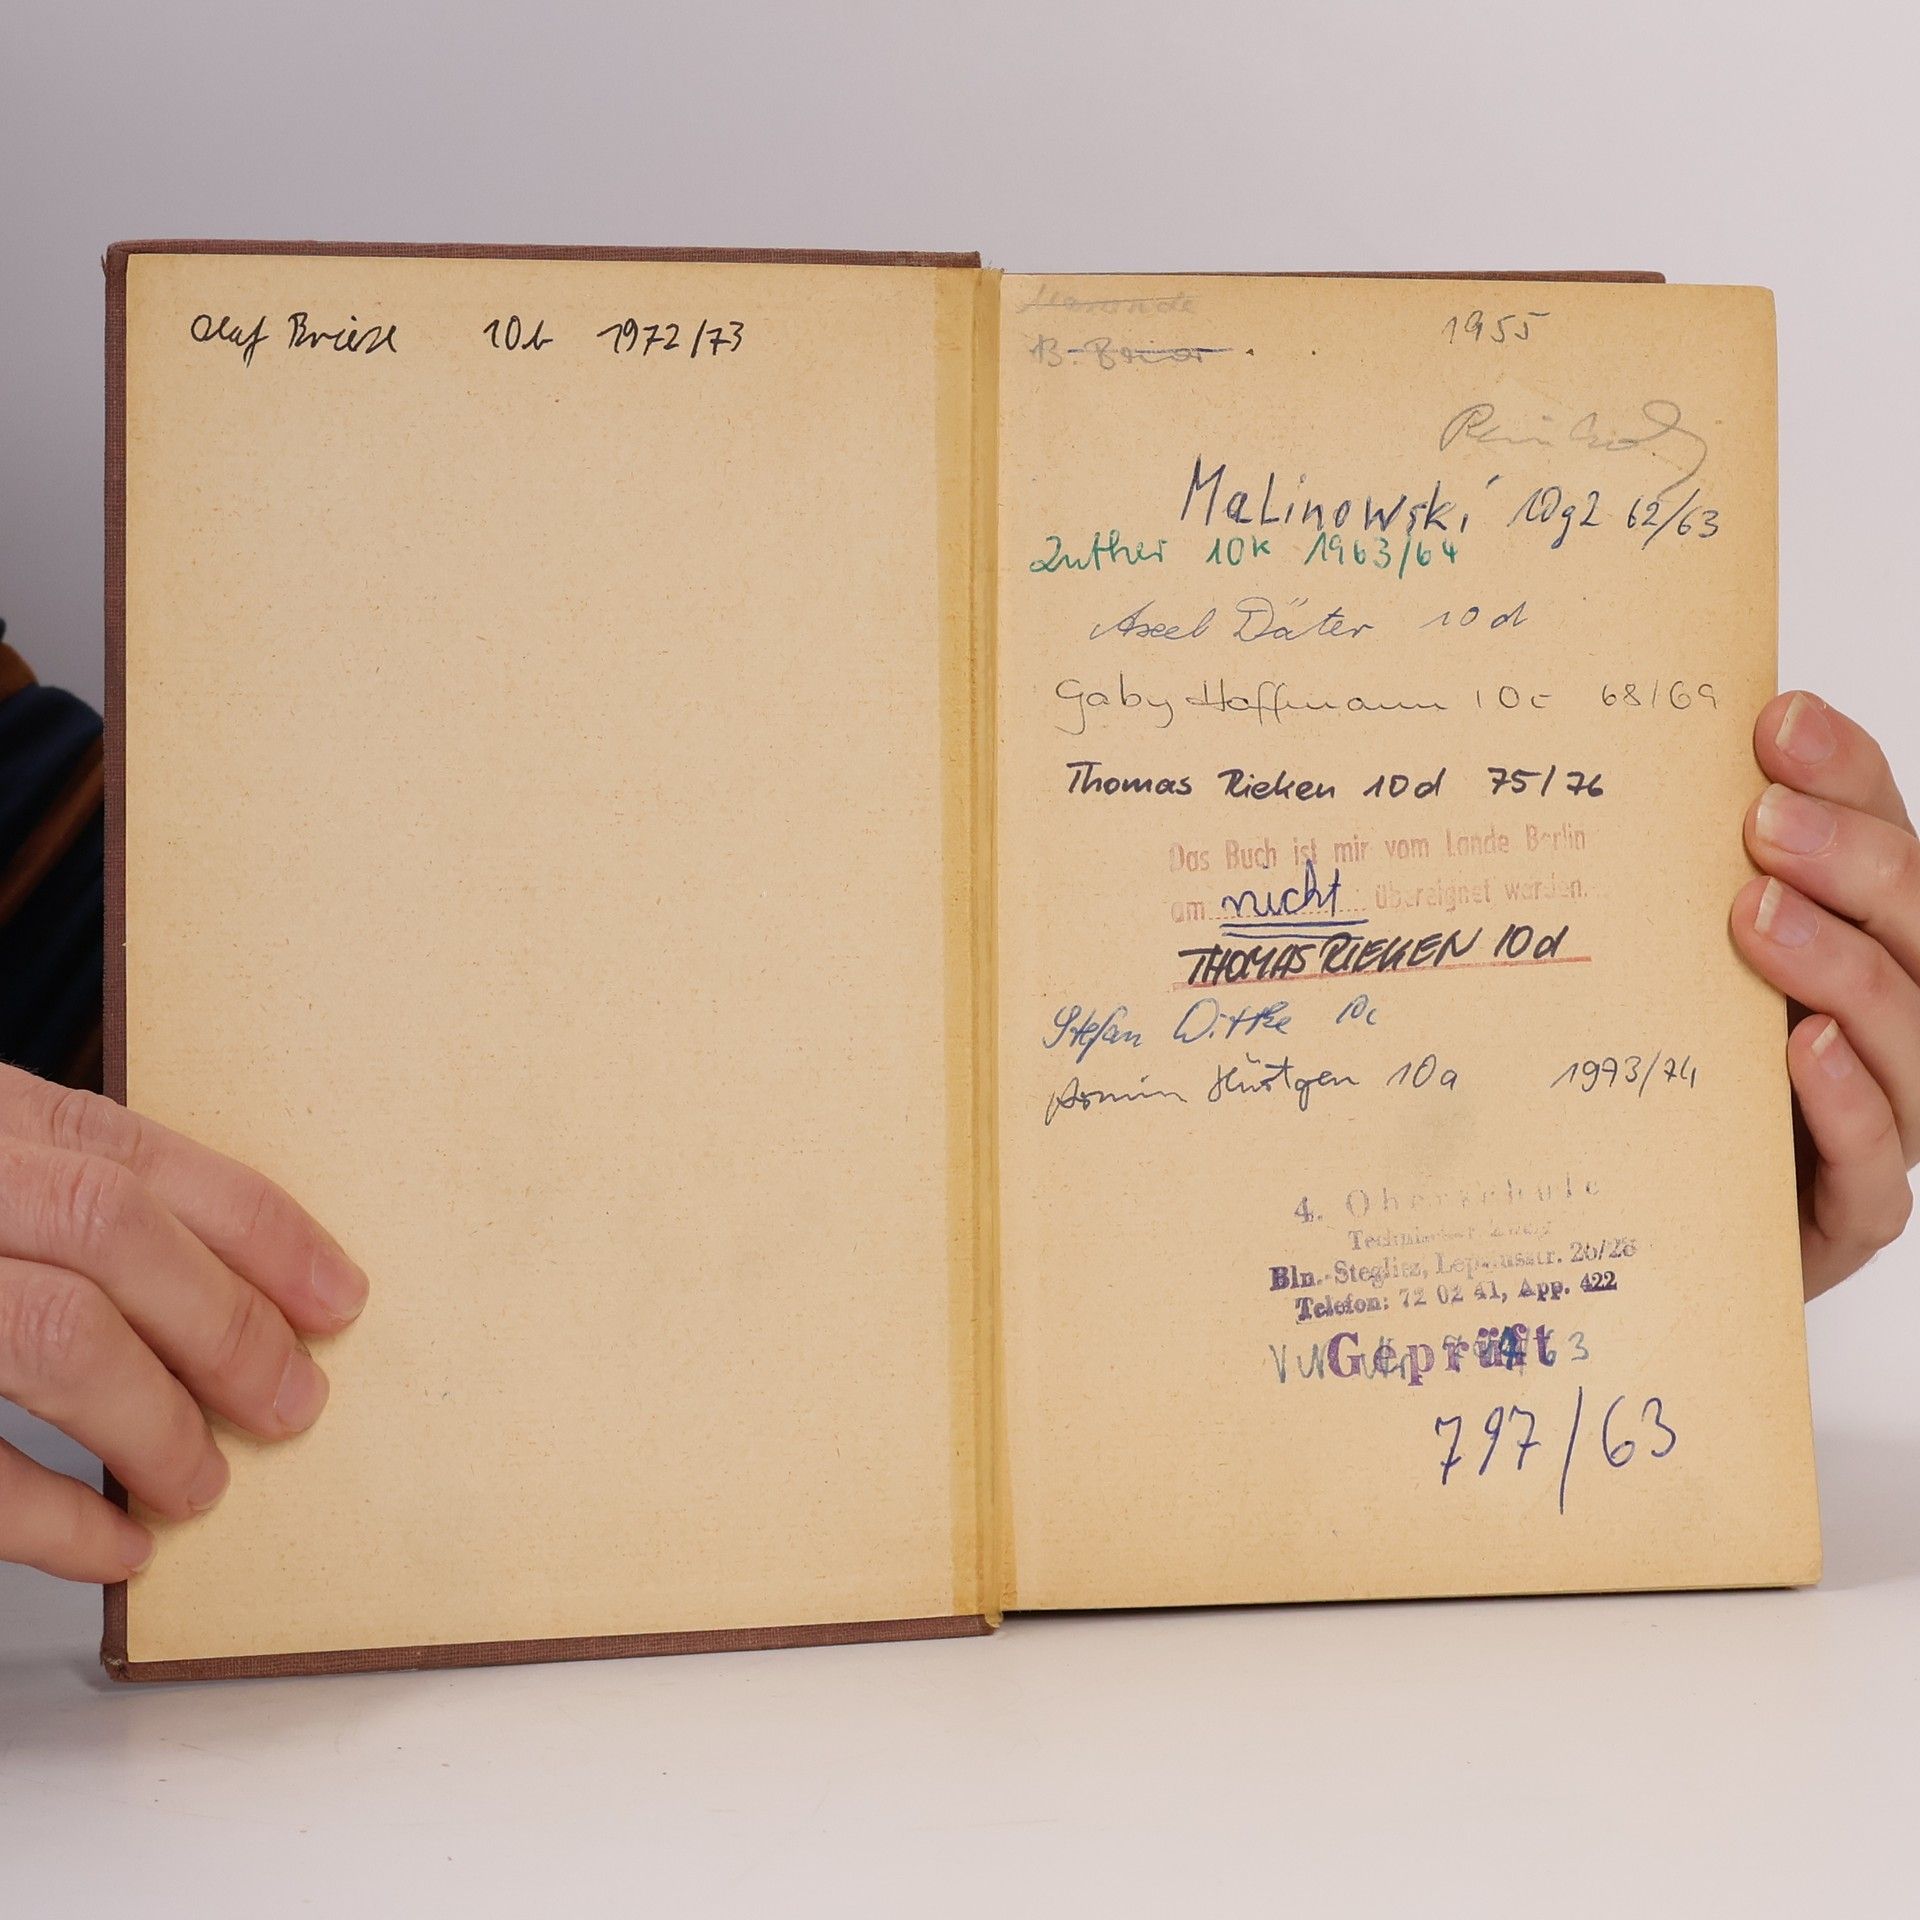 Olaf Briese 10b 1972/73
1955
Malinowski 10g2 62/63
Zuther 10k 1963/64
Axel Däter 10d
Gaby Hoffmann 10c 68/69
Thomas Rieken 10d 75/76
Das Buch ist mir vom Lande Berlin
am nicht übereignet worden.
THOMAS RIEKEN 10d
Stefan Wittke 10c
Armin Hüstgen 10a 1973/74
4. Oberschule
Technischer Zweig
Bln.-Steglitz, Lepsiusstr. 26/28
Telefon: 72 02 41, App. 422
Geprüft
797/63